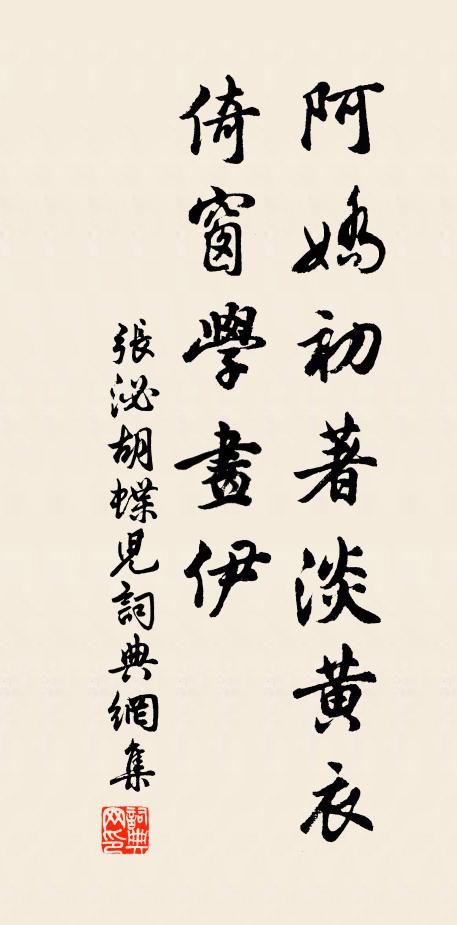 阿嬌初著淡黃衣
倚窗學畫伊
張泌胡蝶兒詞典網集
詞典网印